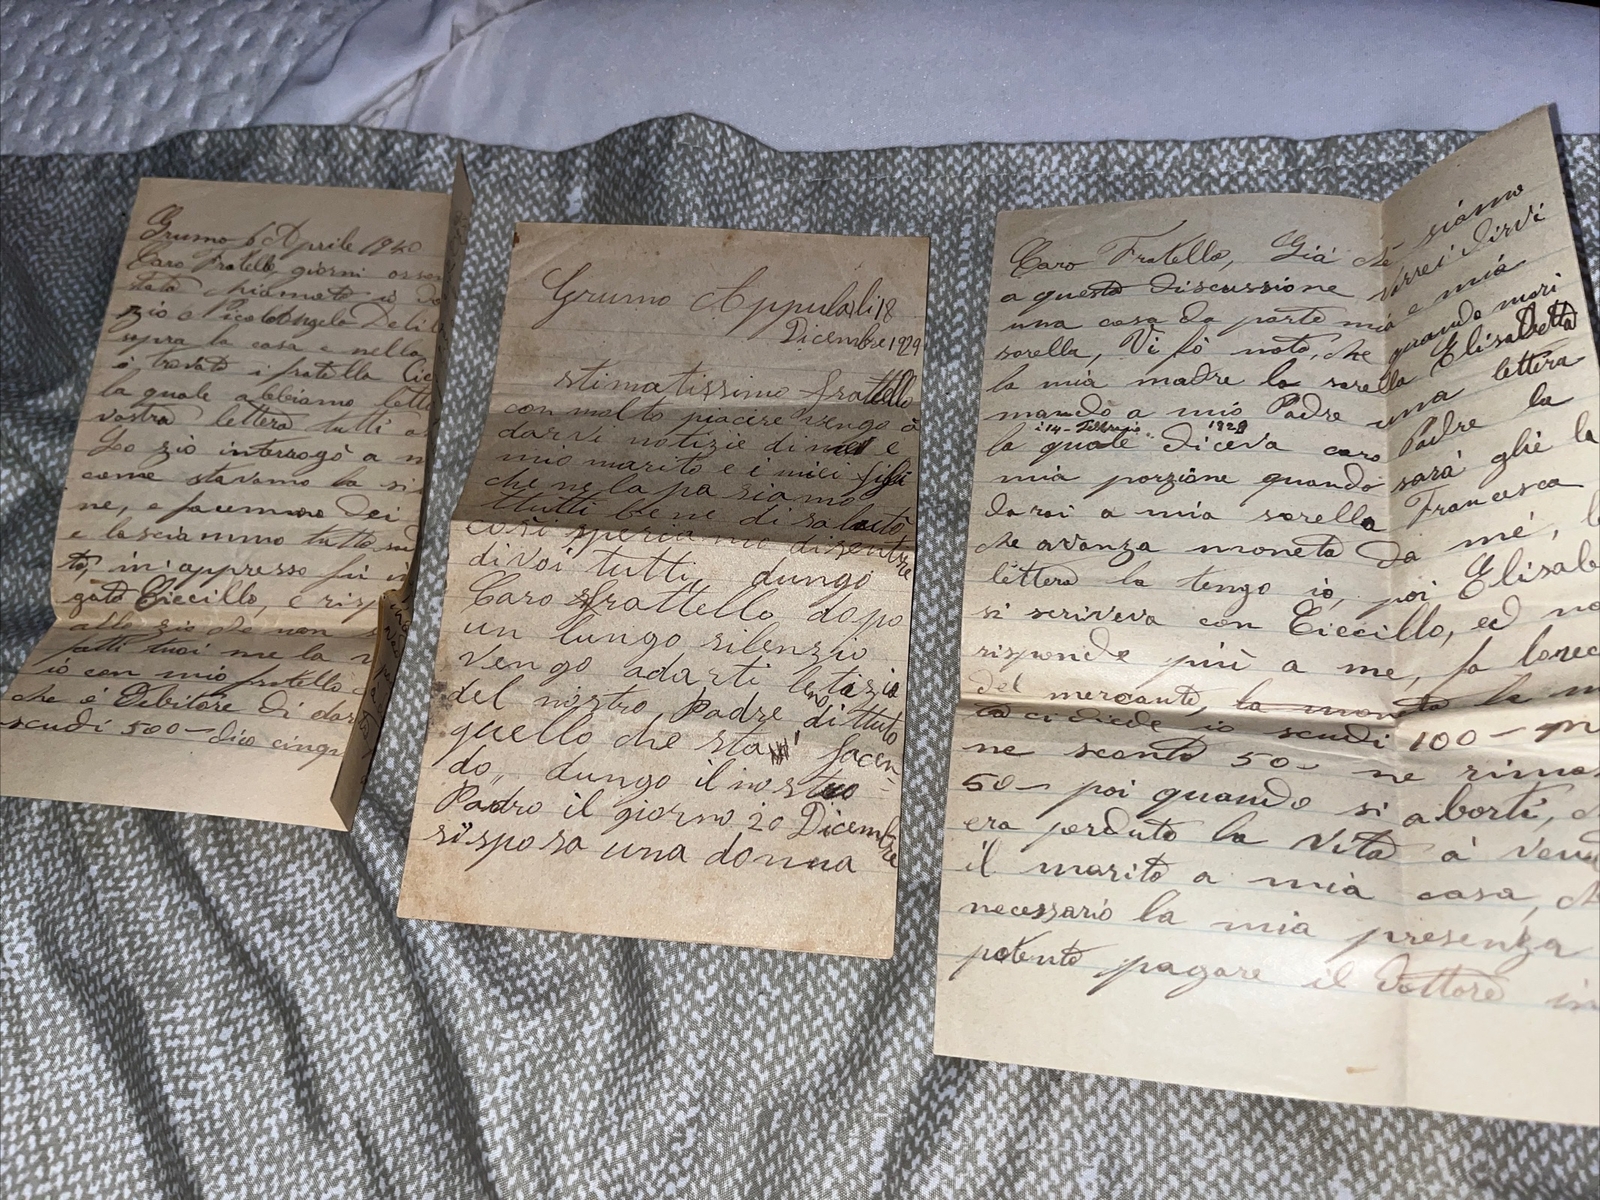 Grumo 6 Aprile 1940
Caro Fratello giorni or sono
stato chiamato
zio Picolangelo Deli
sopra la casa e nella
o trovato i fratello Cic
la quale abbiamo letto
vostra lettera tutti
Lo zio interrogò a m
come stavamo la si
ne, e facemmo dei
e lasciammo tutto su
to, in appresso fu in
gato Ciccillo, e risp
allo zio che non
fatti tuoi me la v
io con mio fratello
che è Debitore di dar
scudi 500 - dico cinqu
Grumo Appula li 18
Dicembre 1929
stimatissimo frattello
con molto piacere vengo à
darvi notizie di me e
mio marito e i miei figli
che ne la pasiamo
ttutti bene di salute
così speriamo disentire
di voi tutti, dungo
Caro frattello dopo
un lungo silenzio
vengo adarti
del nostro Padre di ttuto
quello che sta facen=
do,, dungo il nostro
Padro il giorno 20 Dicembre
si sposa una donna
Caro Fratello, Già che siamo
a questo discussione vorrei dirvi
una cosa da parte mia e mia
sorella, Vi fò noto, che quando morì
la mia madre la sorella Elisabetta
mando a mio Padre una lettera
i 14 - Febbraio 1928
la quale diceva caro Padre la
mia porzione quando sarà glie la
darai a mia sorella Francesca
che avanza moneta da mé, l
lettera la tengo iò, poi Elisab
si scriveva con Ciccillo, ed no
risponde più a me,
del mercanto, la mon
ci diede io scudi 100 -
ne scontò 50 - ne rima
50 - poi quando si abortì,
era perduto la Vita à
il marito a mia casa, ch
necessario la mia presenza
potento pagare il Dottore in